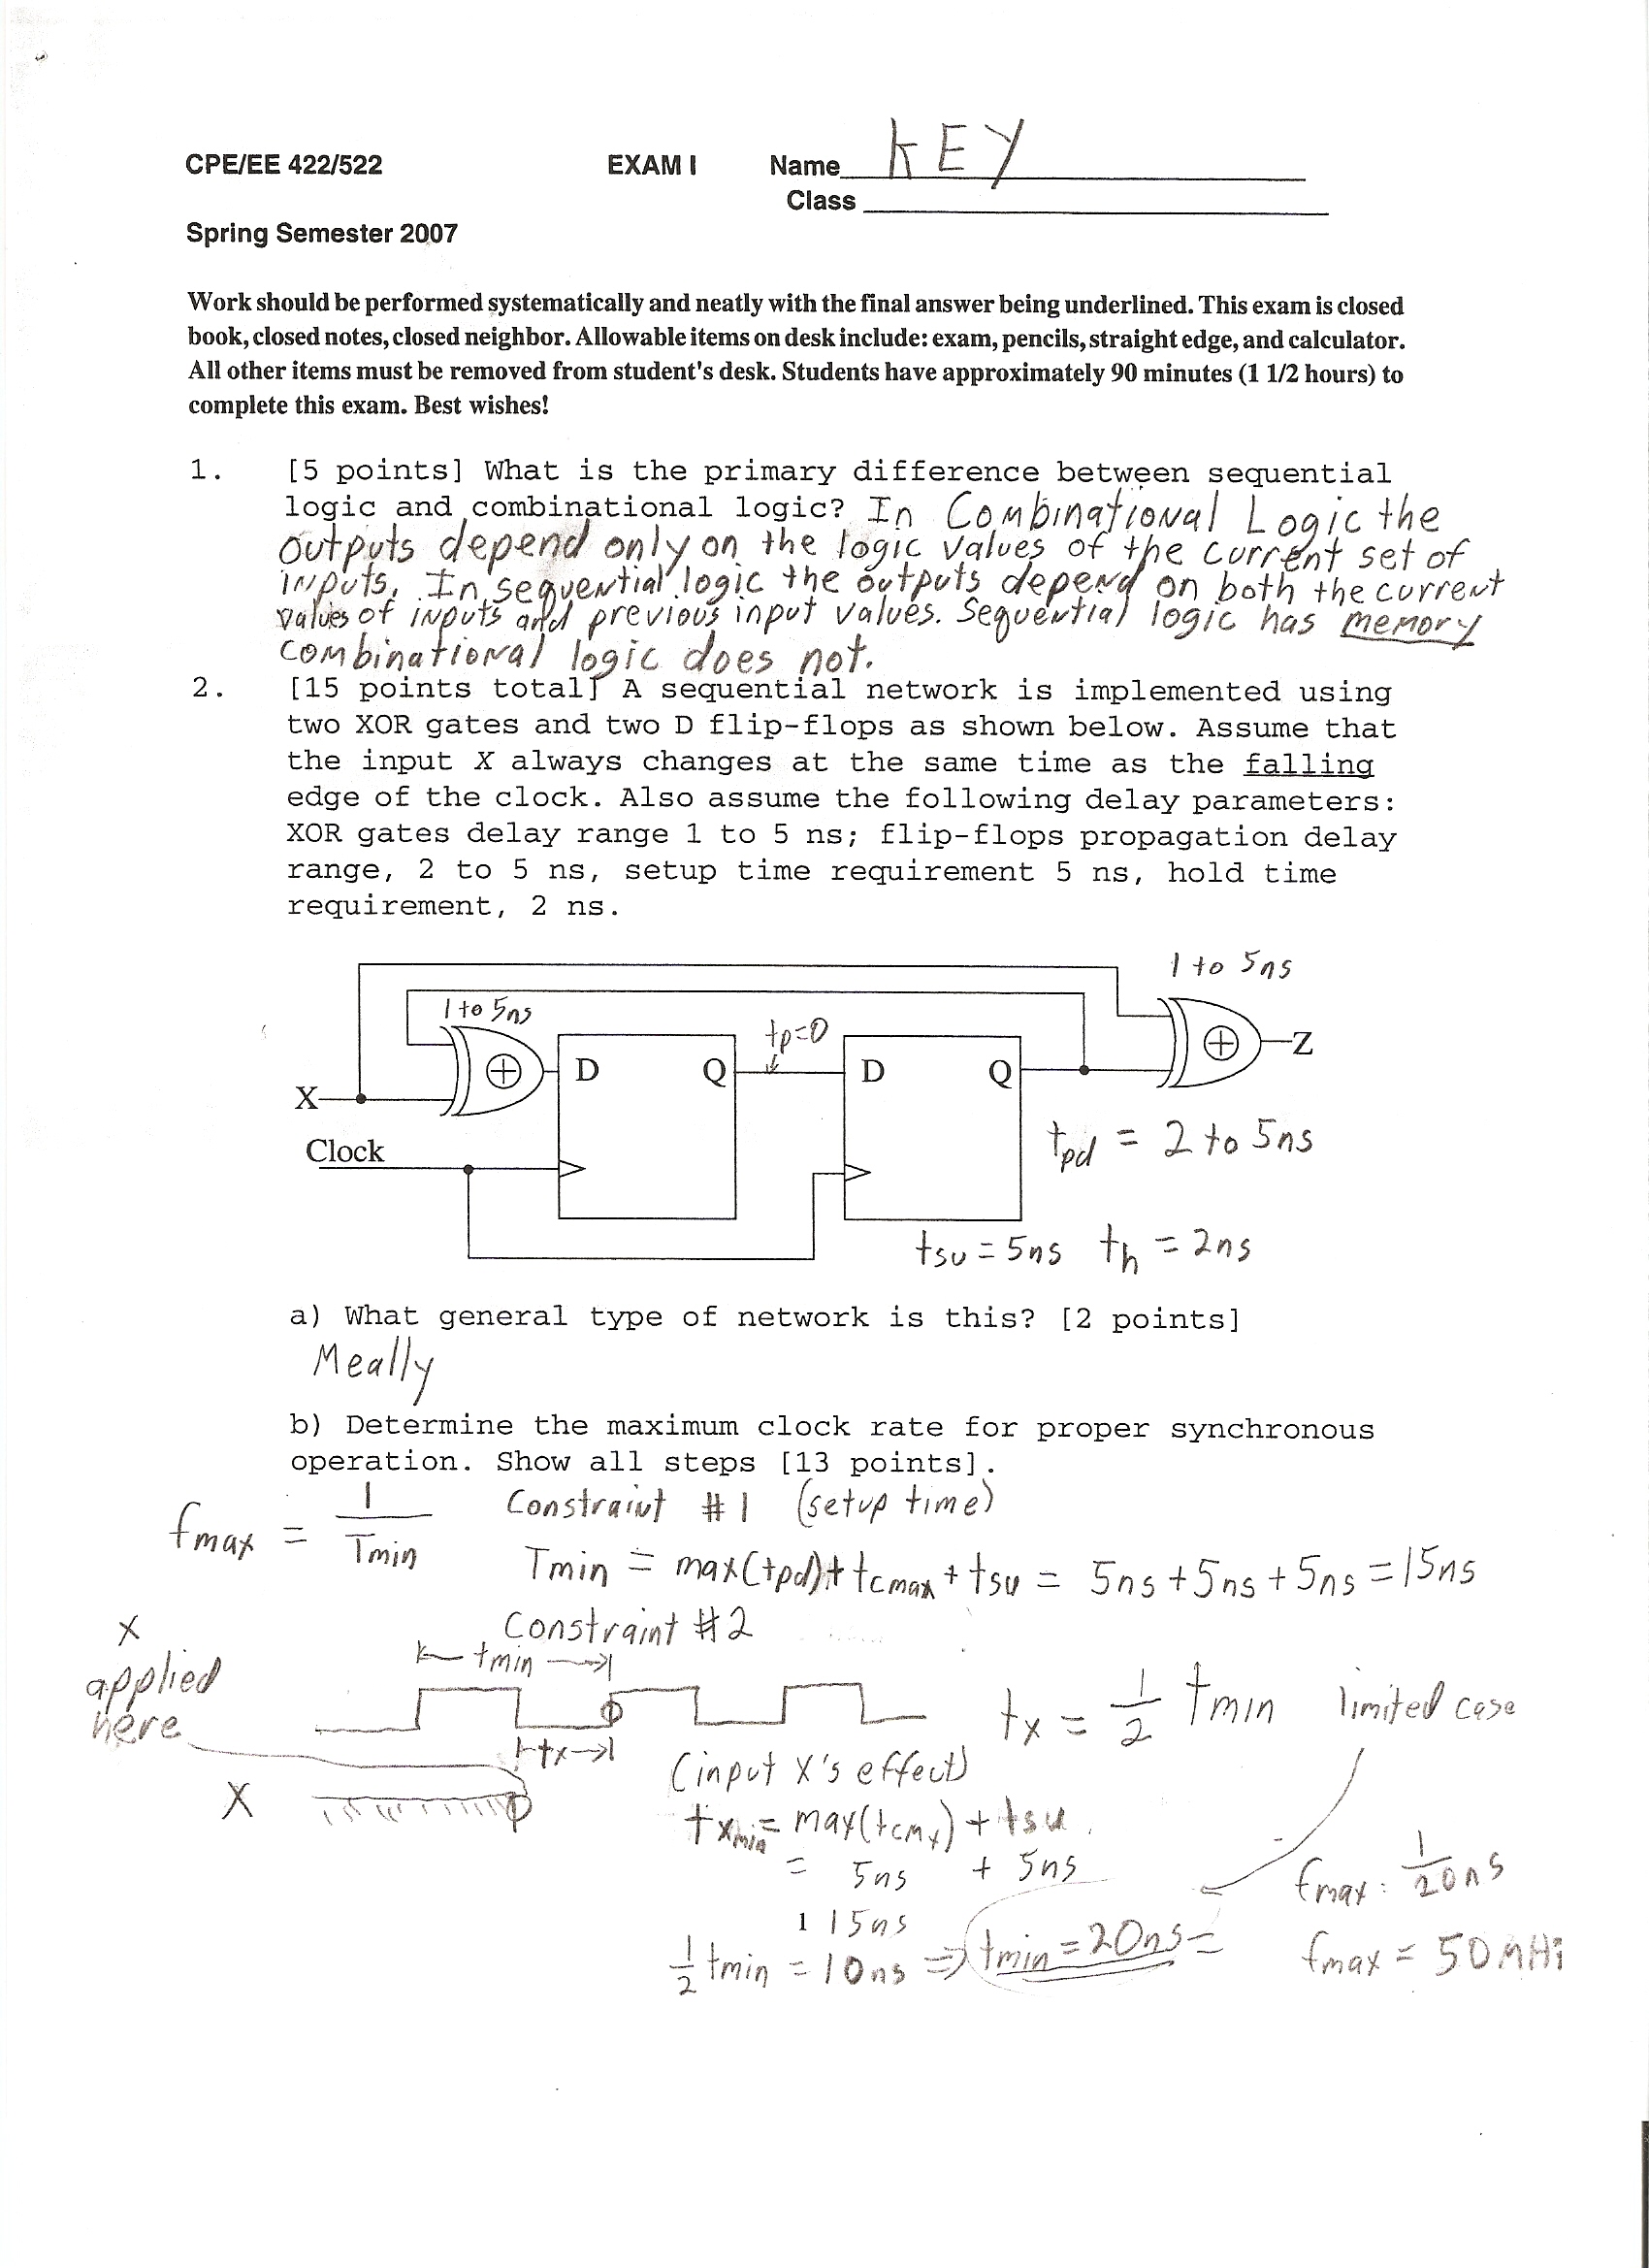 CPE/EE 422/522 EXAM I Name KEY
Class
Spring Semester 2007
Work should be performed systematically and neatly with the final answer being underlined. This exam is closed
book, closed notes, closed neighbor. Allowable items on desk include: exam, pencils, straight edge, and calculator.
All other items must be removed from student's desk. Students have approximately 90 minutes (1 1/2 hours) to
complete this exam. Best wishes!
1. [5 points] What is the primary difference between sequential
logic and combinational logic? In Combinational Logic the
outputs depend only on the logic values of the current set of
inputs. In sequential logic the outputs depend on both the current
values of inputs and previous input values. Sequential logic has memory
combinational logic does not.
2. [15 points total] A sequential network is implemented using
two XOR gates and two D flip-flops as shown below. Assume that
the input X always changes at the same time as the falling
edge of the clock. Also assume the following delay parameters:
XOR gates delay range 1 to 5 ns; flip-flops propagation delay
range, 2 to 5 ns, setup time requirement 5 ns, hold time
requirement, 2 ns.
1 to 5ns
1 to 5ns
tp=0
D Q D Q Z
X
Clock
tpd = 2 to 5ns
tsu = 5ns th = 2ns
a) What general type of network is this? [2 points]
Meally
b) Determine the maximum clock rate for proper synchronous
operation. Show all steps [13 points].
fmax = 1/Tmin Constraint #1 (setup time)
Tmin = max(tpd)+tcmax+tsu = 5ns+5ns+5ns=15ns
Constraint #2
X
applied
here
tmin
tx = 1/2 tmin limited case
tx
(input X's effect)
X
txmin = max(tcmx) + tsu
= 5ns + 5ns
fmax = 1/20ns
1 15ns
1/2 tmin = 10ns ⇒ tmin = 20ns =
fmax = 50MHz